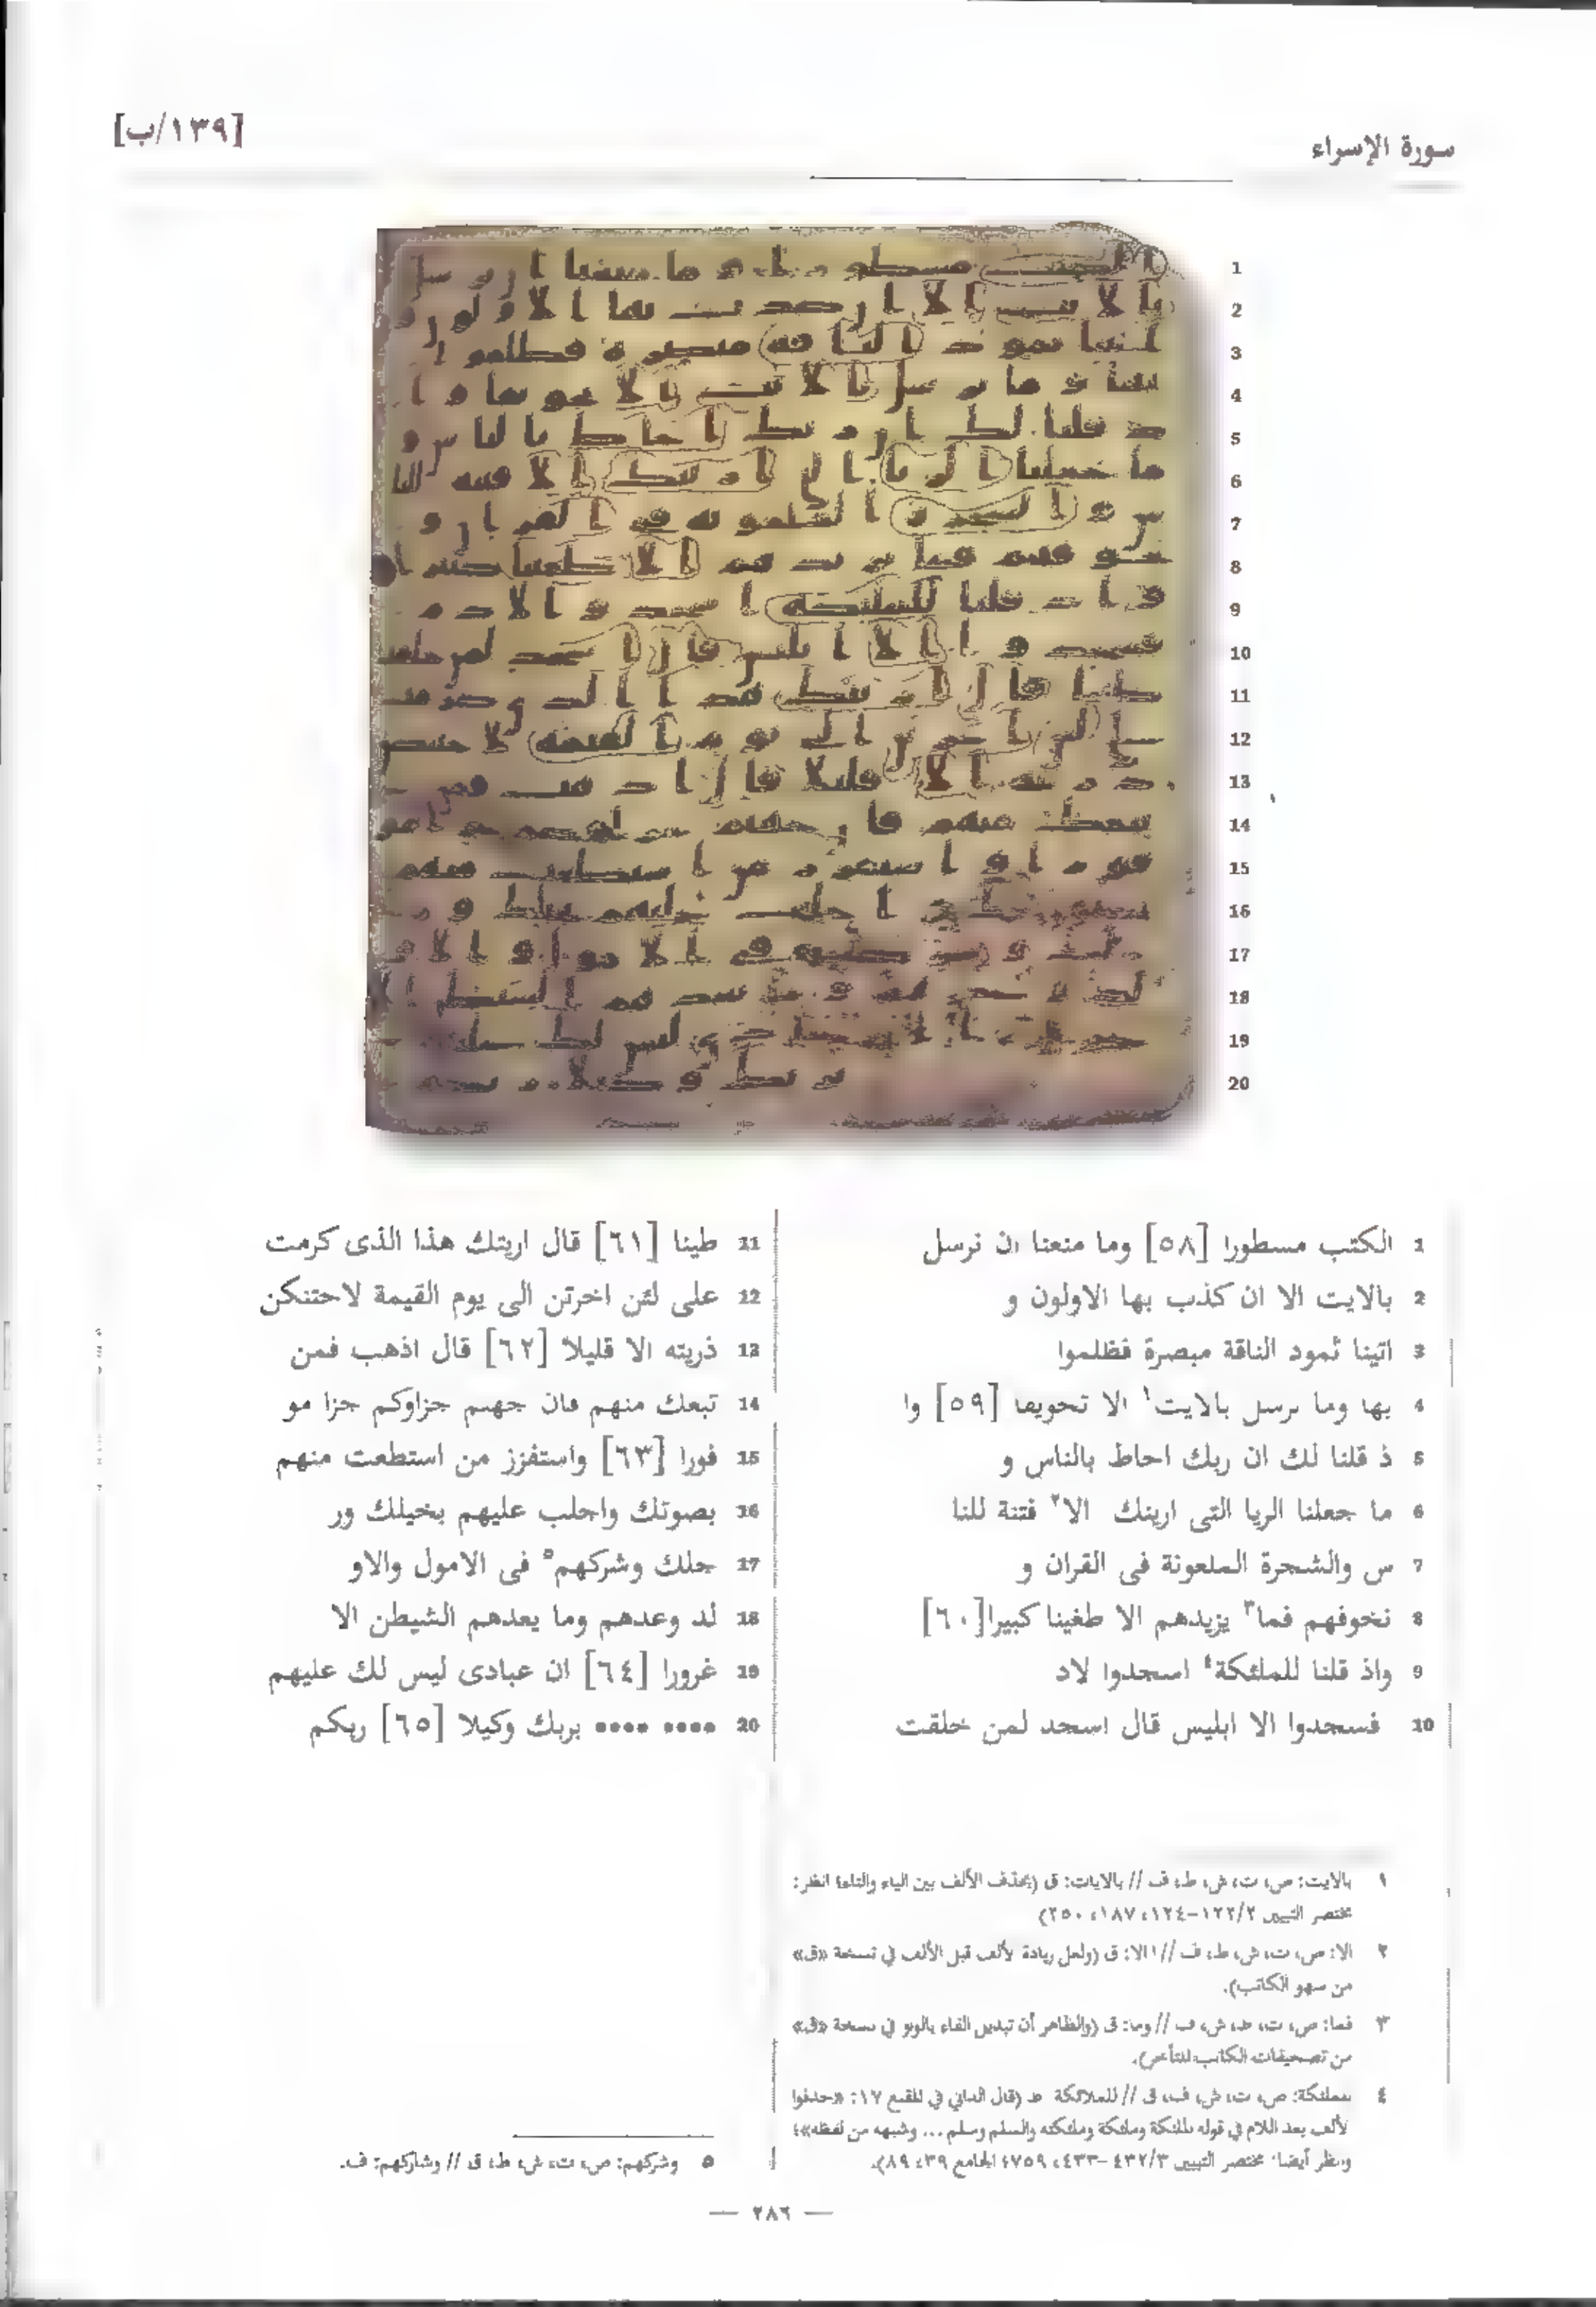 سورة الإسراء
[١٣٩/ب]
1 الكتب مسطورا [٥٨] وما منعنا ان نرسل
2 بالايت الا ان كذب بها الاولون و
3 اتينا ثمود الناقة مبصرة فظلموا
4 بها وما نرسل بالايت١ الا تخويفا [٥٩] وا
5 ذ قلنا لك ان ربك احاط بالناس و
6 ما جعلنا الريا التى ارينك الا٢ فتنة للنا
7 س والشجرة الملعونة فى القران و
8 نخوفهم فما٣ يزيدهم الا طغينا كبيرا[٦٠]
9 واذ قلنا للملئكة٤ اسجدوا لاد
10 فسجدوا الا ابليس قال اسجد لمن خلقت
11 طينا [٦١] قال اريتك هذا الذى كرمت
12 على لئن اخرتن الى يوم القيمة لاحتنكن
13 ذريته الا قليلا [٦٢] قال اذهب فمن
14 تبعك منهم فان جهنم جزاوكم جزا مو
15 فورا [٦٣] واستفزز من استطعت منهم
16 بصوتك واجلب عليهم بخيلك ور
17 جلك وشركهم٥ فى الامول والاو
18 لد وعدهم وما يعدهم الشيطن الا
19 غرورا [٦٤] ان عبادى ليس لك عليهم
20 •••• •••• بربك وكيلا [٦٥] ربكم
١ بالايت: ص، ت، ش، ط، ف // بالايات: ق (بحذف الألف بين الياء والتاء؛ انظر:
مختصر التبيين ١٢٢/٢-١٢٤، ١٨٧، ٢٥٠)
٢ الا: ص، ت، ش، ط، ف // ا الا: ق (ولعل زيادة الألف قبل الألف في نسخة «ق»
من سهو الكاتب).
٣ فما: ص، ت، ط، ش، ف // وما: ق (والظاهر أن تبديل الفاء بالواو في نسخة «ق»
من تصحيفات الكاتب المتأخر).
٤ للملئكة: ص، ت، ش، ف، ق // للملائكة: ط (قال الداني في المقنع ١٧: «حذفوا
الألف بعد اللام في قوله الملئكة وملئكة وملئكته والسلم وسلم... وشبهه من لفظه»؛
وانظر أيضا: مختصر التبيين ٤٣٢/٣-٤٣٣، ٧٥٩؛ الجامع ٣٩، ٨٩).
٥ وشركهم: ص، ت، ش، ط، ق // وشاركهم: ف.
— ٢٨٦ —